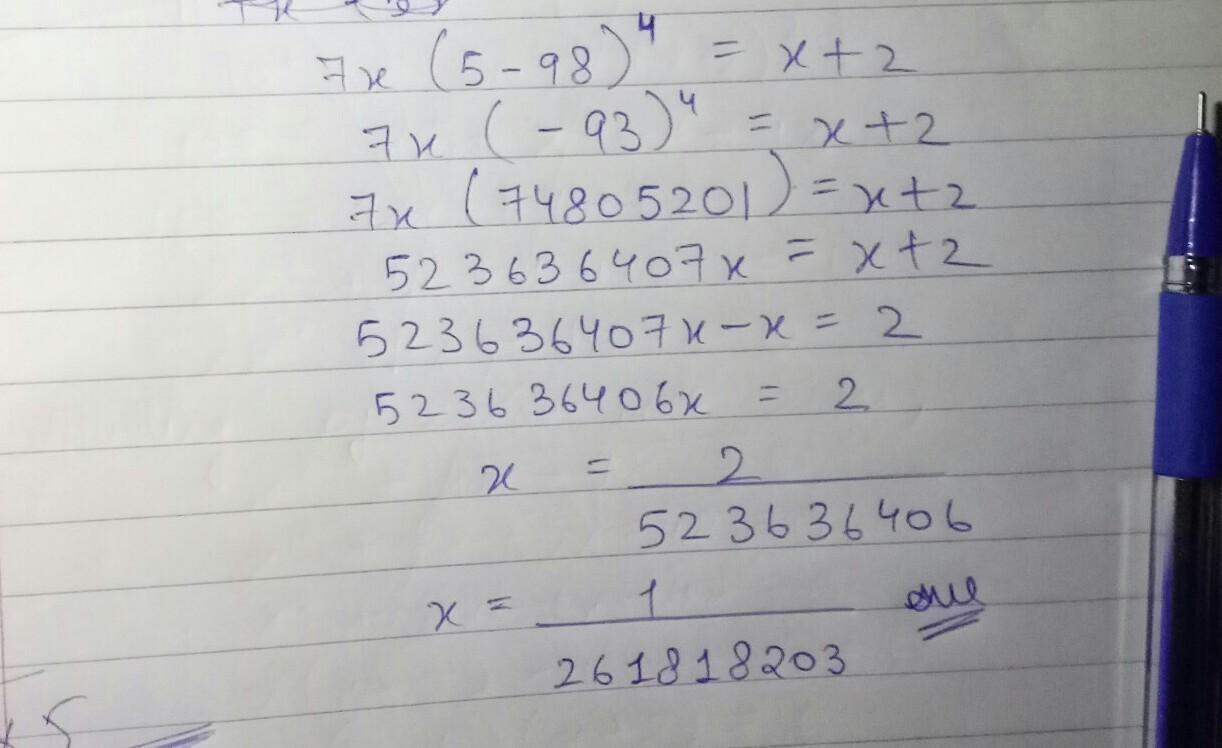 7x (5-98)⁴ = x+2
7x (-93)⁴ = x+2
7x (74805201) = x+2
523636407x = x+2
523636407x-x = 2
523636406x = 2
x = 2
523636406
x = 1
261818203
5